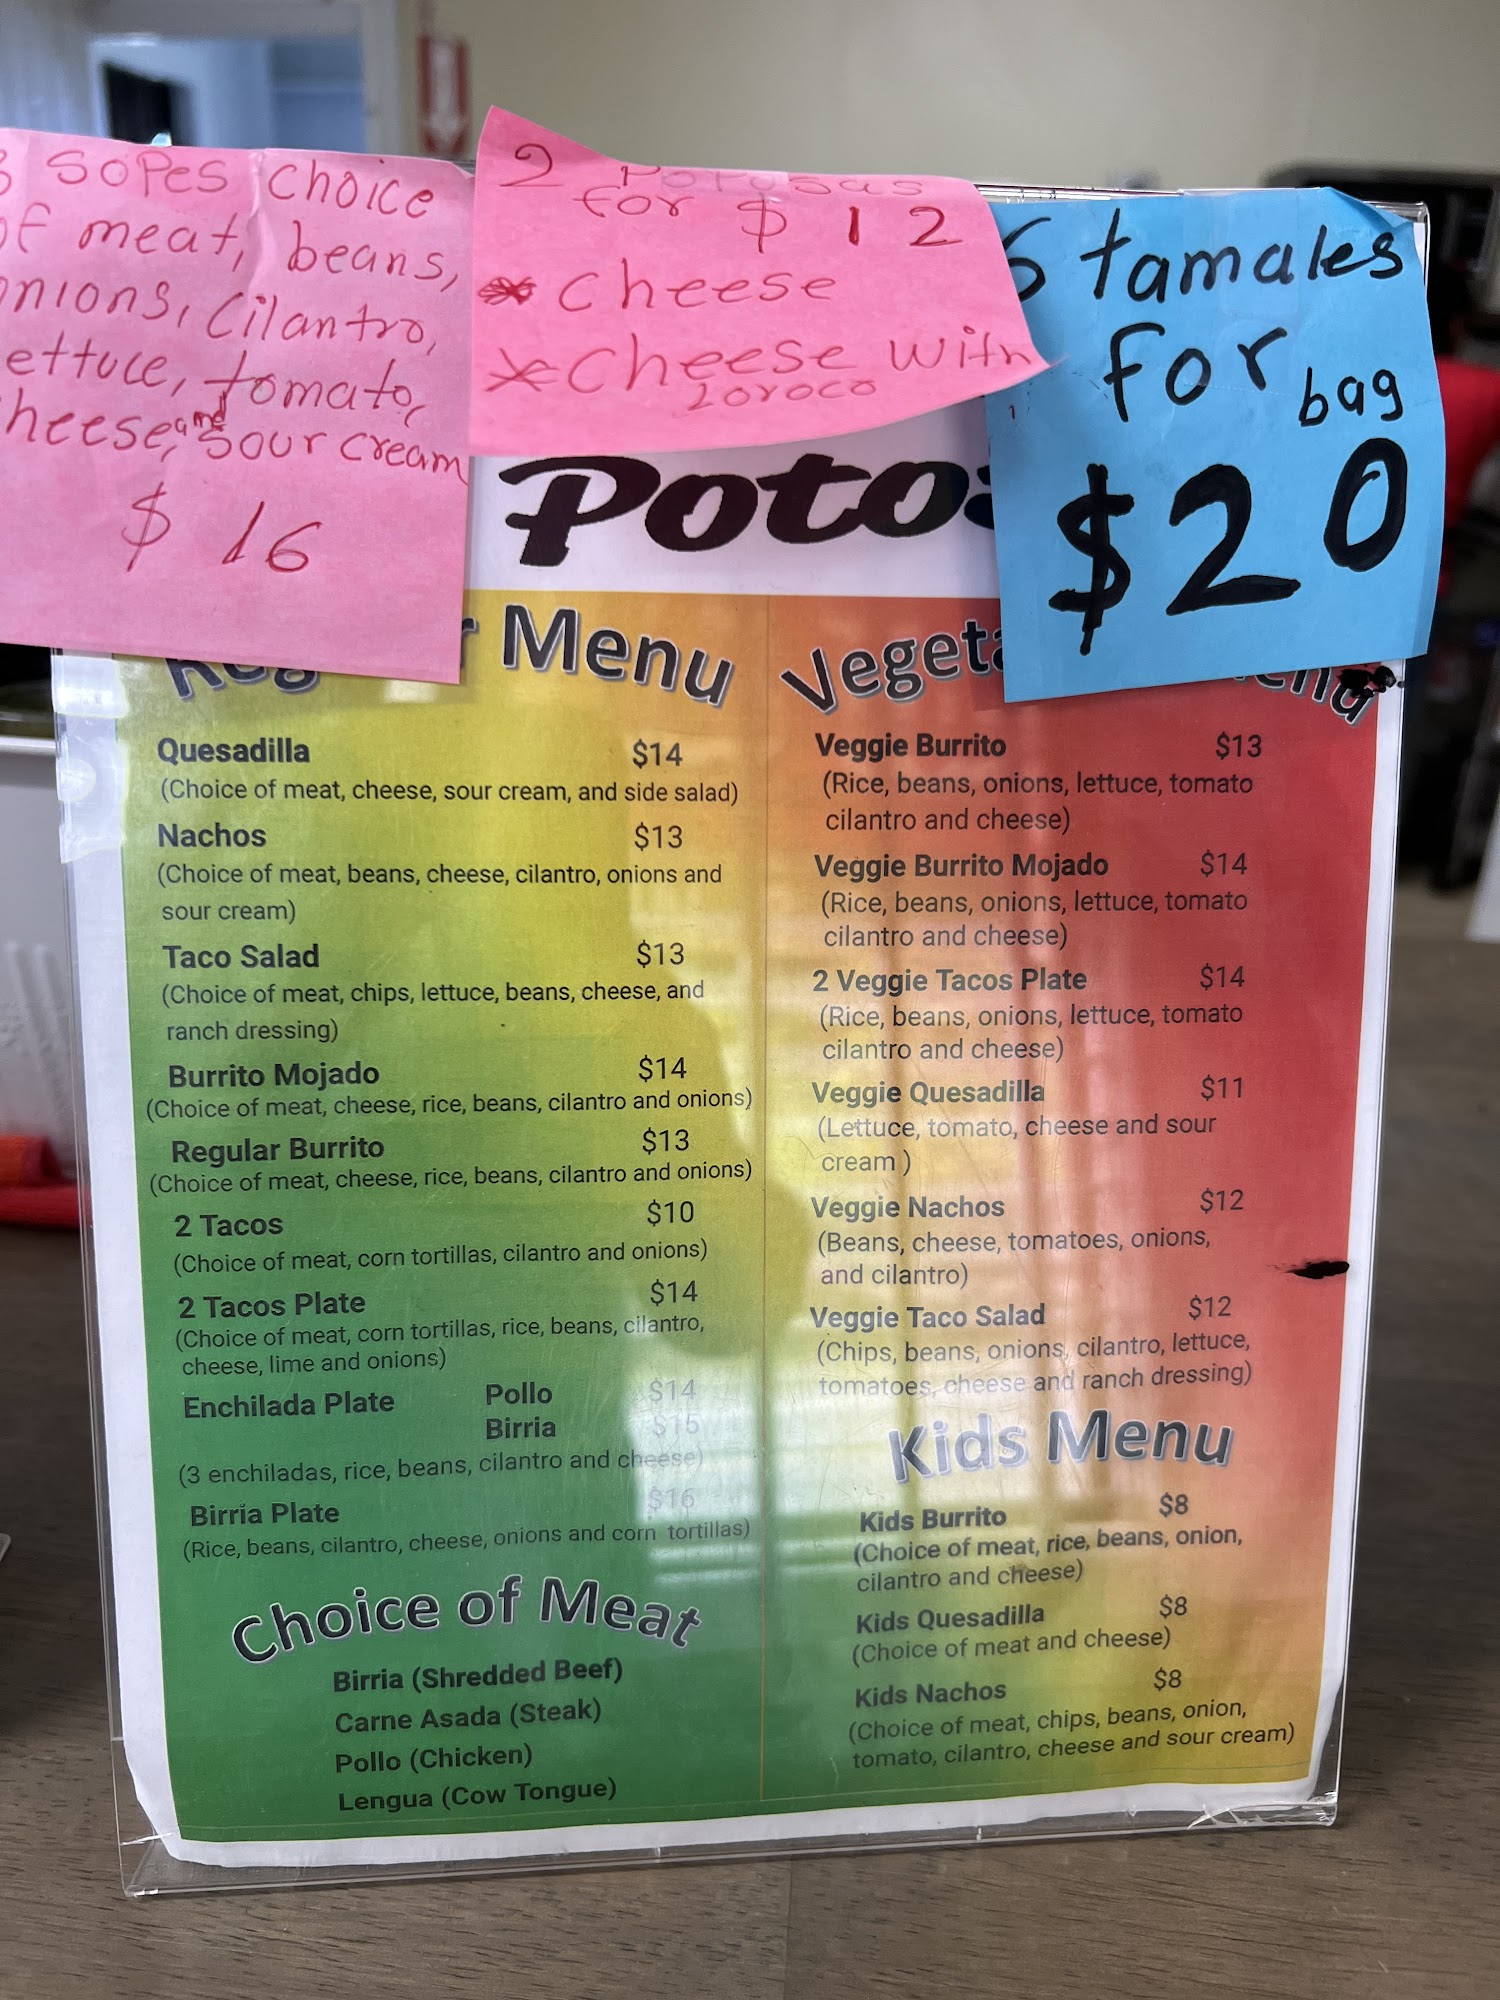 SOPES choice
of meat, beans,
onions, cilantro,
lettuce, tomato,
cheese, and sour cream
$16
2 POPOSAS
for $12
* cheese
* cheese with
loroco
6 tamales
for bag
$20
Poto
Regular Menu
Quesadilla $14
(Choice of meat, cheese, sour cream, and side salad)
Nachos $13
(Choice of meat, beans, cheese, cilantro, onions and
sour cream)
Taco Salad $13
(Choice of meat, chips, lettuce, beans, cheese, and
ranch dressing)
Burrito Mojado $14
(Choice of meat, cheese, rice, beans, cilantro and onions)
Regular Burrito $13
(Choice of meat, cheese, rice, beans, cilantro and onions)
2 Tacos $10
(Choice of meat, corn tortillas, cilantro and onions)
2 Tacos Plate $14
(Choice of meat, corn tortillas, rice, beans, cilantro,
cheese, lime and onions)
Enchilada Plate Pollo $14
Birria $15
(3 enchiladas, rice, beans, cilantro and cheese)
Birria Plate $16
(Rice, beans, cilantro, cheese, onions and corn tortillas)
Choice of Meat
Birria (Shredded Beef)
Carne Asada (Steak)
Pollo (Chicken)
Lengua (Cow Tongue)
Vegeta enu
Veggie Burrito $13
(Rice, beans, onions, lettuce, tomato
cilantro and cheese)
Veggie Burrito Mojado $14
(Rice, beans, onions, lettuce, tomato
cilantro and cheese)
2 Veggie Tacos Plate $14
(Rice, beans, onions, lettuce, tomato
cilantro and cheese)
Veggie Quesadilla $11
(Lettuce, tomato, cheese and sour
cream )
Veggie Nachos $12
(Beans, cheese, tomatoes, onions,
and cilantro)
Veggie Taco Salad $12
(Chips, beans, onions, cilantro, lettuce,
tomatoes, cheese and ranch dressing)
Kids Menu
Kids Burrito $8
(Choice of meat, rice, beans, onion,
cilantro and cheese)
Kids Quesadilla $8
(Choice of meat and cheese)
Kids Nachos $8
(Choice of meat, chips, beans, onion,
tomato, cilantro, cheese and sour cream)